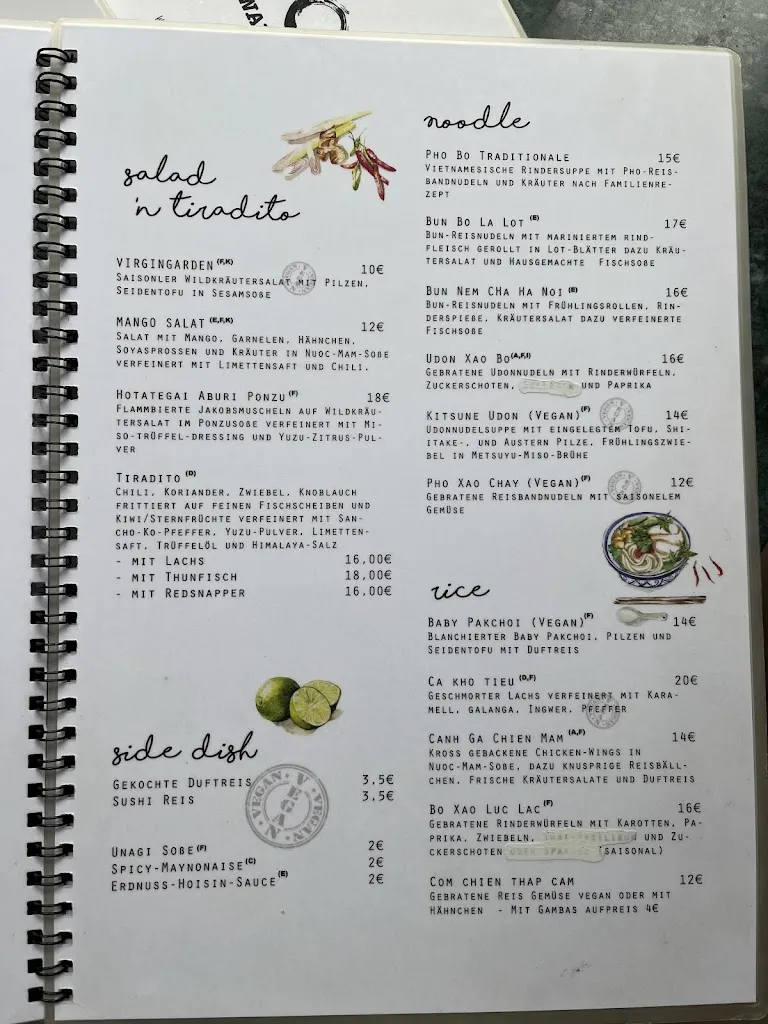 salad
'n tiradito
Virgingarden (F,K) 10€
Saisonler Wildkräutersalat mit Pilzen,
Seidentofu in Sesamsoße
Mango Salat (E,F,K) 12€
Salat mit Mango, Garnelen, Hähnchen,
Soyasprossen und Kräuter in Nuoc-Mam-Soße
verfeinert mit Limettensaft und Chili.
Hotategai Aburi Ponzu (F) 18€
Flammbierte Jakobsmuscheln auf Wildkräu-
tersalat im Ponzusoße verfeinert mit Mi-
so-Trüffel-Dressing und Yuzu-Zitrus-Pul-
ver
Tiradito (D)
Chili, Koriander, Zwiebel, Knoblauch
frittiert auf feinen Fischscheiben und
Kiwi/Sternfrüchte verfeinert mit San-
cho-Ko-Pfeffer, Yuzu-Pulver, Limetten-
saft, Trüffelöl und Himalaya-Salz
- mit Lachs 16,00€
- mit Thunfisch 18,00€
- mit Redsnapper 16,00€
side dish
Gekochte Duftreis 3.5€
Sushi Reis 3.5€
VEGAN
Unagi Soße (F) 2€
Spicy-Maynonaise (C) 2€
Erdnuss-Hoisin-Sauce (E) 2€
noodle
Pho Bo Traditionale 15€
Vietnamesische Rindersuppe mit Pho-Reis-
bandnudeln und Kräuter nach Familienre-
zept
Bun Bo La Lot (E) 17€
Bun-Reisnudeln mit mariniertem rind-
fleisch gerollt in Lot-Blätter dazu Kräu-
tersalat und Hausgemachte Fischsoße
Bun Nem CHa Ha Noi (E) 16€
Bun-Reisnudeln mit Frühlingsrollen, Rin-
derspieße, Kräutersalat dazu verfeinerte
Fischsoße
Udon Xao Bo (A,F,I) 16€
Gebratene Udonnudeln mit Rinderwürfeln,
Zuckerschoten, und Paprika
Kitsune Udon (Vegan) (F) 14€
Udonnudelsuppe mit eingelegtem Tofu, Shi-
itake-, und Austern Pilze, Frühlingszwie-
bel in Metsuyu-Miso-Brühe
Pho Xao Chay (Vegan) (F) 12€
Gebratene Reisbandnudeln mit saisonelem
Gemüse
rice
Baby Pakchoi (Vegan) (F) 14€
Blanchierter Baby Pakchoi, Pilzen und
Seidentofu mit Duftreis
Ca kho tieu (D,F) 20€
Geschmorter Lachs verfeinert mit Kara-
mell, Galanga, Ingwer, Pfeffer
Canh Ga Chien Mam (A,F) 14€
Kross gebackene Chicken-Wings in
Nuoc-Mam-Soße, dazu knusprige Reisbäll-
chen, Frische Kräutersalate und Duftreis
Bo Xao Luc Lac (F) 16€
Gebratene Rinderwürfeln mit Karotten, Pa-
prika, Zwiebeln, und Zu-
ckerschoten (saisonal)
Com chien thap cam 12€
Gebratene Reis Gemüse vegan oder mit
Hähnchen - Mit Gambas aufpreis 4€